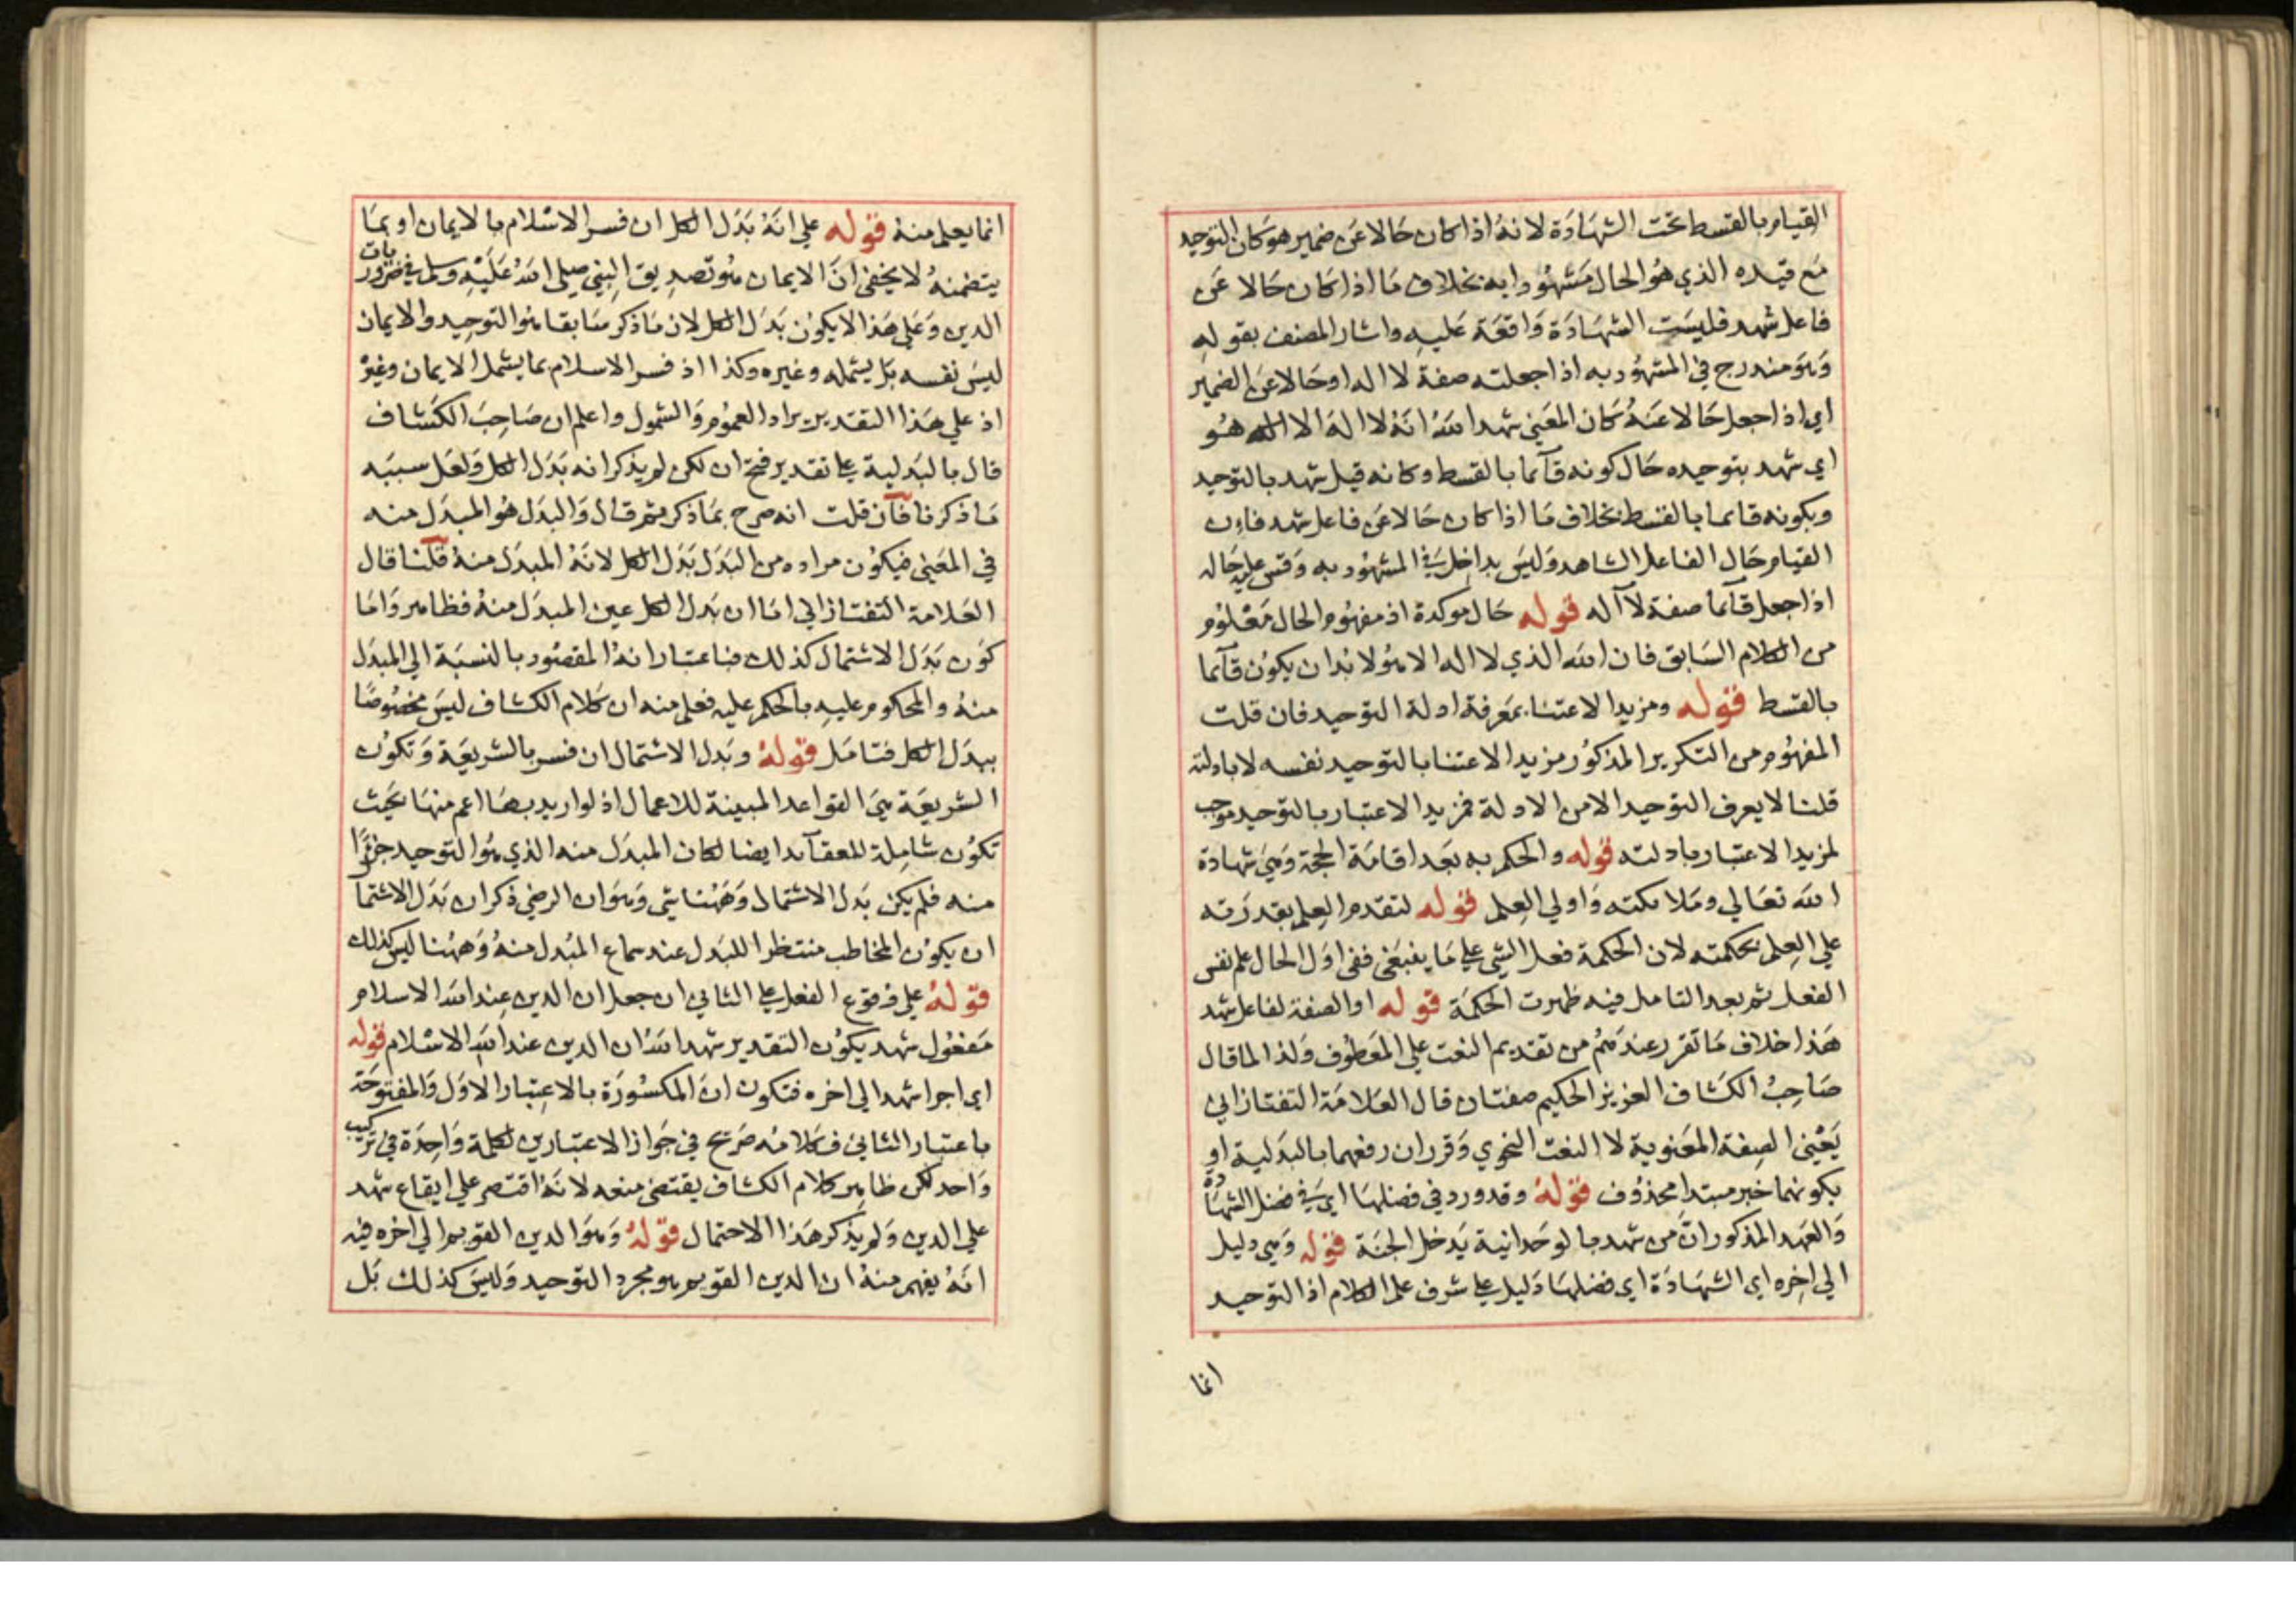 القيام بالقسط تحت الشهادة لانه اذا كان حالا عن ضمير هو كان التوحيد
مع قيده الذي هو الحال مشهودا به بخلاف ما اذا كان حالا عن
فاعل شهد فليست الشهادة واقعة عليه واشار المصنف بقوله
وهو مندرج في المشهود به اذا جعلته صفة لا اله او حالا عن الضمير
اي اذا جعل حالا عنه كان المعني شهد الله انه لا اله الا الله هو
اي شهد بتوحيده حال كونه قآئما بالقسط وكانه قيل شهد بالتوحيد
وبكونه قايما بالقسط بخلاف ما اذا كان حالا عن فاعل شهد فان
القيام حال الفاعل الشاهد وليس بداخل في المشهود به وقس عليه حاله
اذا جعل قآئما صفة لآ اله قوله حال موكدة اذ مفهوم الحال معلوم
من الكلام السابق فان الله الذي لا اله الا هو لا بد ان يكون قآئما
بالقسط قوله ومزيد الاعتنا بمعرفة ادلة التوحيد فان قلت
المفهوم من التكرير المذكور مزيد الاعتنا بالتوحيد نفسه لا بادلته
قلنا لا يعرف التوحيد الا من الادلة فمزيد الاعتبار بالتوحيد موجب
لمزيد الاعتبار بادلته قوله والحكم به بعد اقامة الحجة وهي شهادة
الله تعالي وملائكته واولي العلم قوله لتقدم العلم بقدرته
علي العلم بحكمته لان الحكمة فعل الشي علي ما ينبغي ففي اول الحال علم نفس
الفعل ثم بعد التامل فيه ظهرت الحكمة قوله او الصفة لفاعل شهد
هذا خلاف ما تقرر عندهم من تقديم النعت علي المعطوف ولذا لما قال
صاحب الكشاف العزيز الحكيم صفتان قال العلامة التفتازاني
يعني الصفة المعنوية لا النعت النحوي وقرر ان رفعهما بالبدلية او
بكونهما خبر مبتدا محذوف قوله وقد ورد في فضلها اي في فضل الشهادة
والعهد المذكور ان من شهد بالوحدانية يدخل الجنة قوله وهي دليل
الي اخره اي الشهادة اي فضلها دليل علي شرف علم الكلام اذ التوحيد
انما
انما يعلم منه قوله علي انه بدل الكل ان فسر الاسلام بالايمان او بما
يتضمنه لا يخفي ان الايمان هو تصديق النبي صلي الله عليه وسلم في ضروريات
الدين وعلي هذا لا يكون بدل الكل لان ما ذكر سابقا هو التوحيد والايمان
ليس نفسه بل يشمله وغيره وكذا اذ فسر الاسلام بما يشمل الايمان وغيره
اذ علي هذا التقدير يراد العموم والشمول واعلم ان صاحب الكشاف
قال بالبدلية علي تقدير فتح ان لكن لم يذكر انه بدل الكل ولعل سببه
ما ذكرنا فان قلت انه صرح بما ذكر ثم قال والبدل هو المبدل منه
في المعني فيكون مراده من البدل بدل الكل لانه المبدل منه قلنا قال
العلامة التفتازاني اما ان بدل الكل عين المبدل منه فظاهر واما
كون بدل الاشتمال كذلك فباعتبار انه المقصود بالنسبة الي المبدل
منه والمحكوم عليه بالحكم عليه فعلم منه ان كلام الكشاف ليس مخصوصا
ببدل الكل فتامل قوله وبدل الاشتمال ان فسر بالشريعة وتكون
الشريعة هي القواعد المبينة للاعمال اذ لو اريد بها اعم منها بحيث
تكون شاملة للعقآئد ايضا لكان المبدل منه الذي هو التوحيد جزءا
منه فلم يكن بدل الاشتمال وههنا شي وهو ان الرضي ذكر ان بدل الاشتما
ان يكون المخاطب منتظرا للبدل عند سماع المبدل منه وههنا ليس كذلك
قوله علي وقوع الفعل علي الثاني ان جعل ان الدين عند الله الاسلام
مفعول شهد يكون التقدير شهد الله ان الدين عند الله الاسلام قوله
اي اجرا شهد الي اخره فتكون ان المكسورة بالاعتبار الاول والمفتوحة
باعتبار الثاني فكلامه صريح في جواز الاعتبارين لكلمة واحدة في تركيب
واحد لكن ظاهر كلام الكشاف يقتضي منعه لانه اقتصر علي ايقاع شهد
علي الدين ولم يذكر هذا الاحتمال قوله وهو الدين القويم الي اخره فيه
انه يفهم منه ان الدين القويم هو مجرد التوحيد وليس كذلك بل